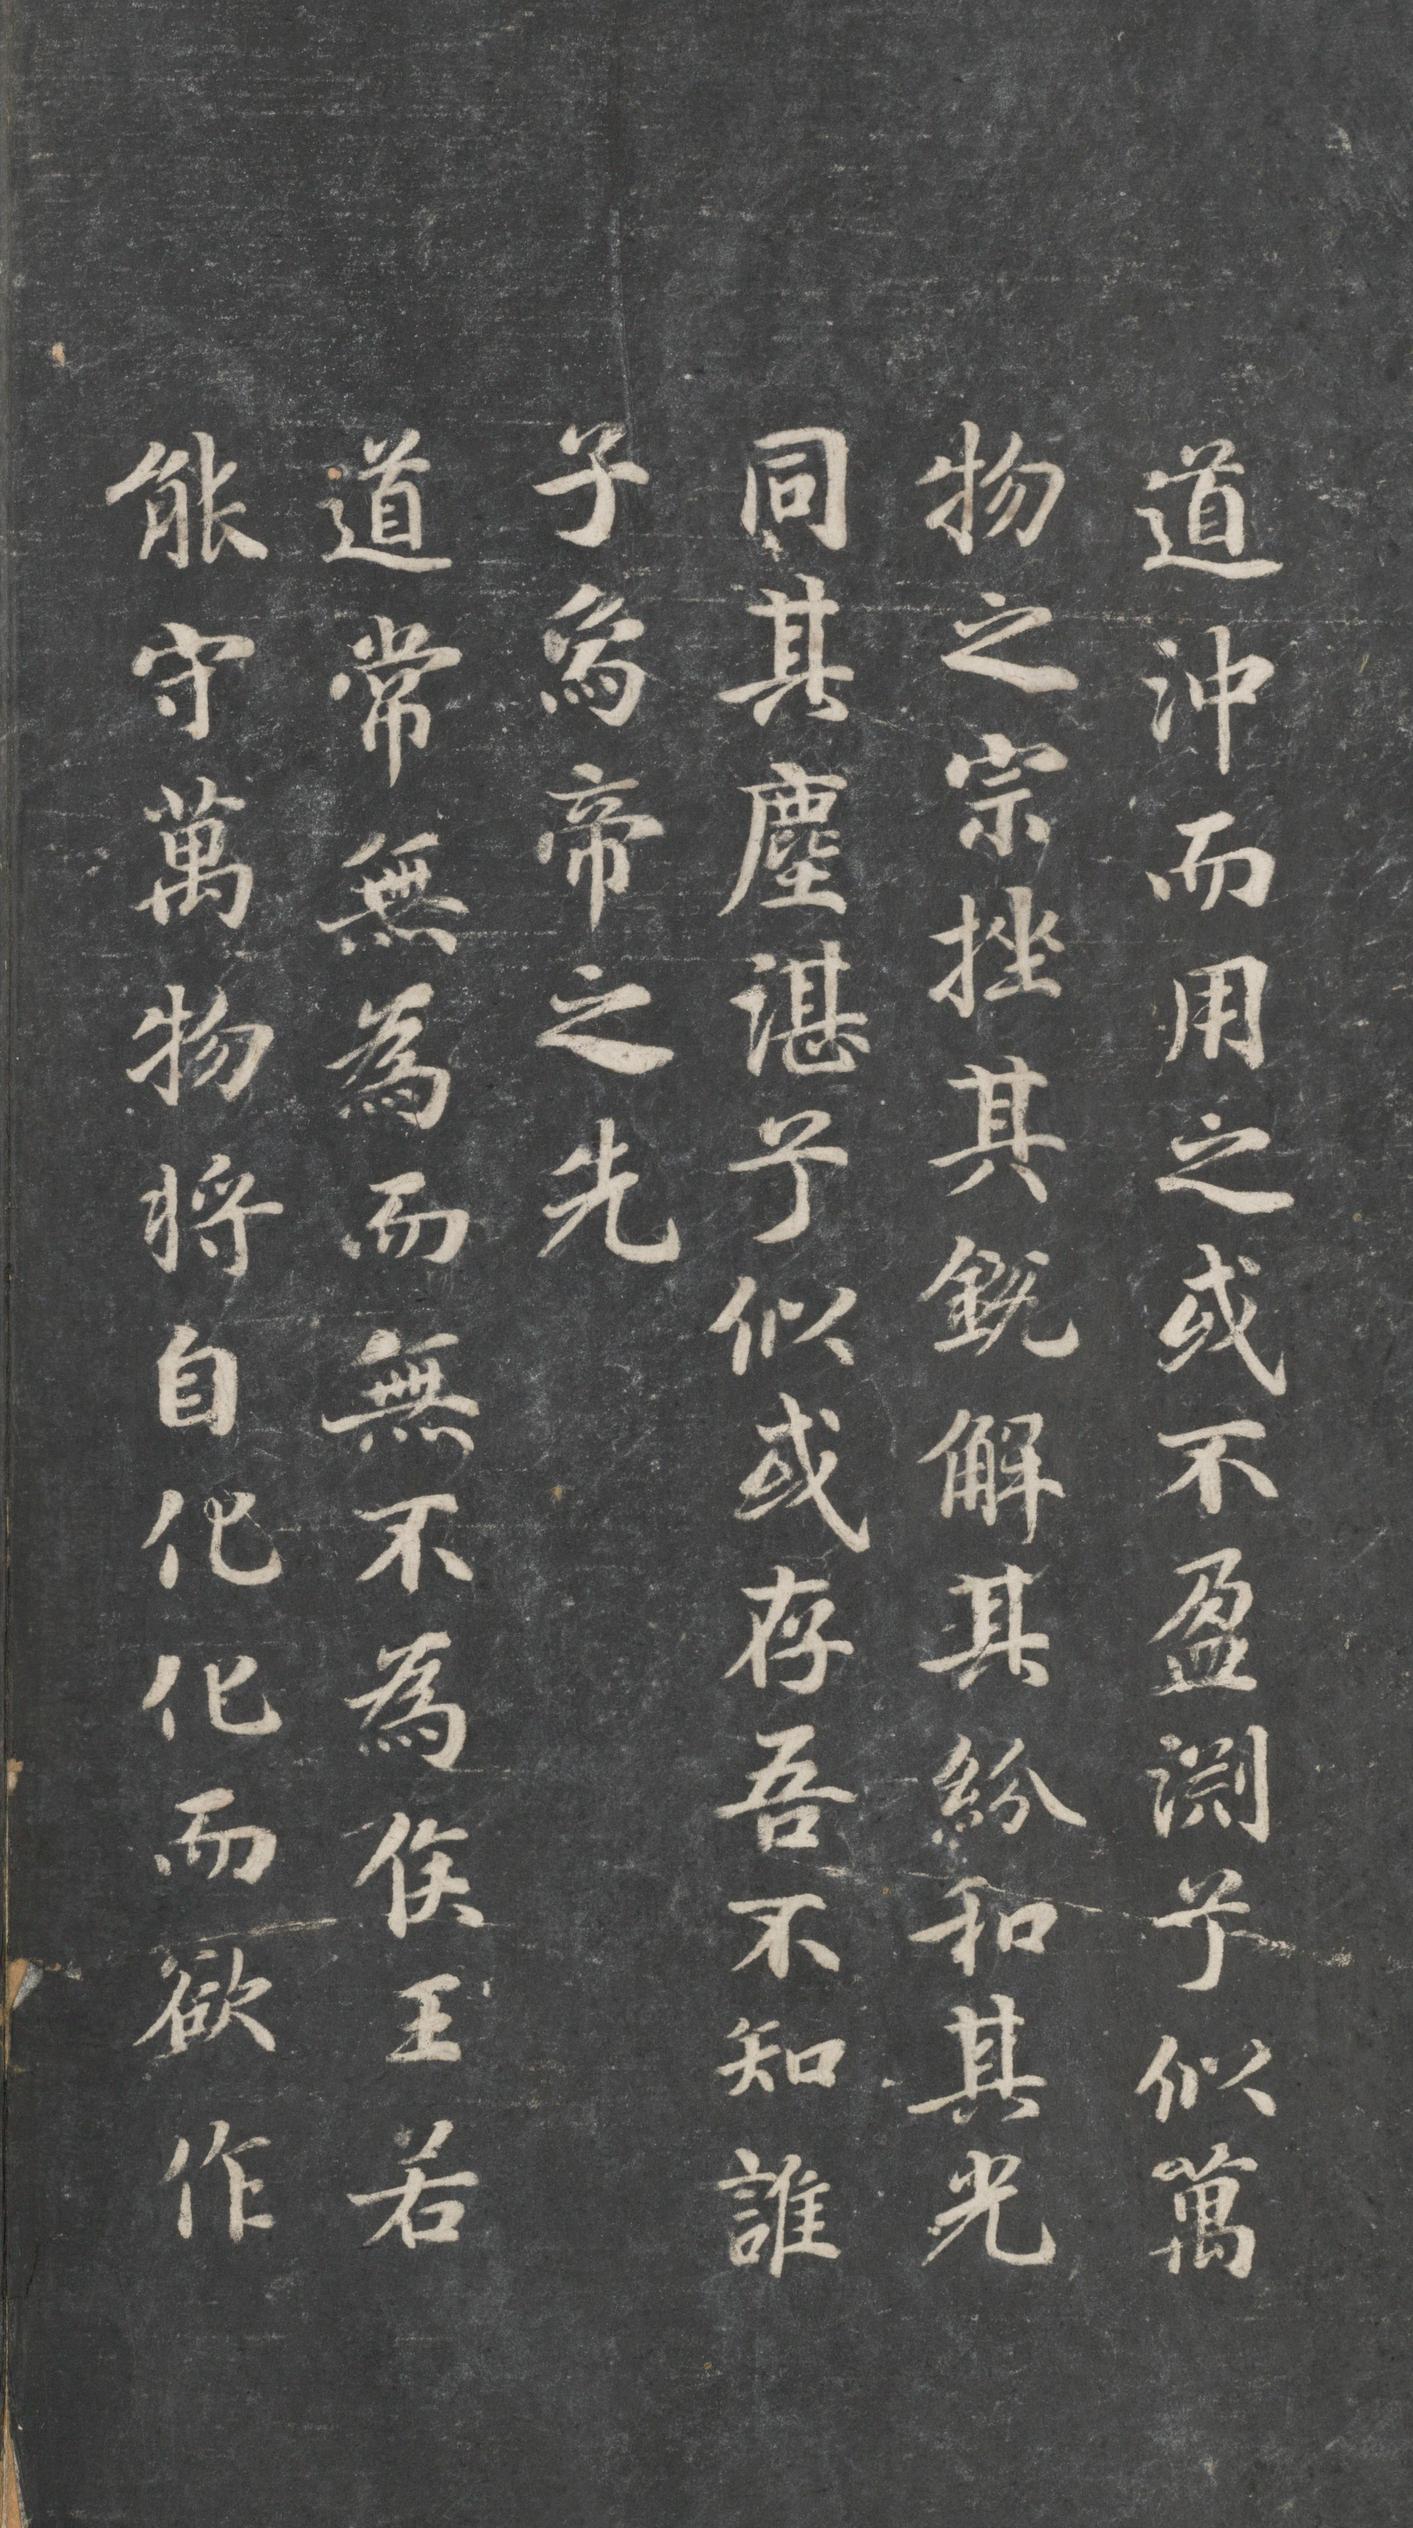 道沖而用之或不盈淵兮似萬
物之宗挫其銳解其紛和其光
同其塵湛兮似或存吾不知誰
子爲帝之先
道常無為而無不為侯王若
能守萬物將自化化而欲作